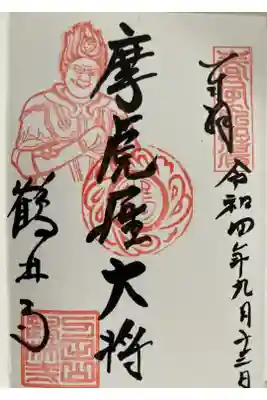 奉拝
令和四年九月十三日
摩虎羅大将
鶴林寺